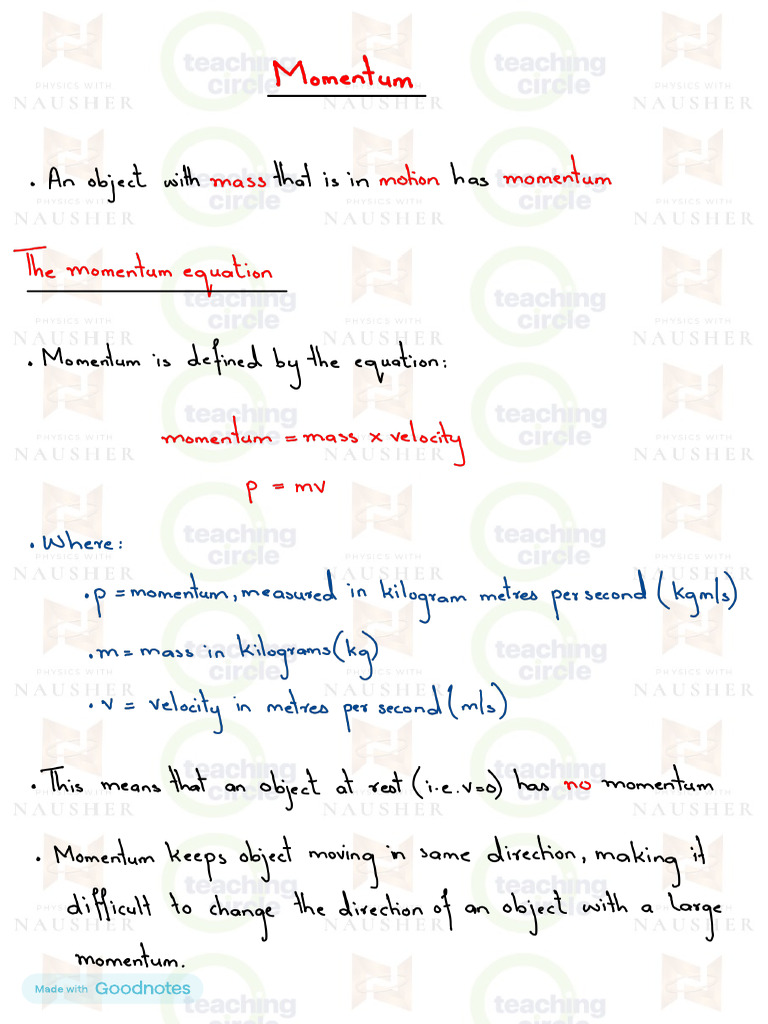 Momentum
• An object with mass that is in motion has momentum
The momentum equation
• Momentum is defined by the equation:
momentum = mass x velocity
p = mv
• Where:
• p = momentum, measured in kilogram metres per second (kgm/s)
• m = mass in kilograms (kg)
• v = velocity in metres per second (m/s)
• This means that an object at rest (i.e. v=0) has no momentum
• Momentum keeps object moving in same direction, making it
difficult to change the direction of an object with a large
momentum.
Made with Goodnotes
PHYSICS WITH
NAUSHER
teaching
circle